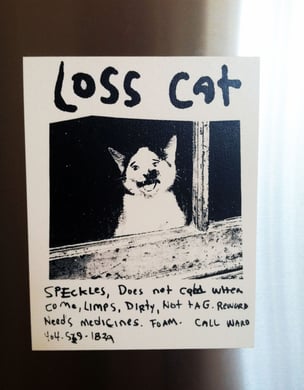 Loss Cat
SPECKLES, Does not call when
come, Limps, Dirty, Not tAG. Reword
Needs medicines. FOAM. CALL WARD